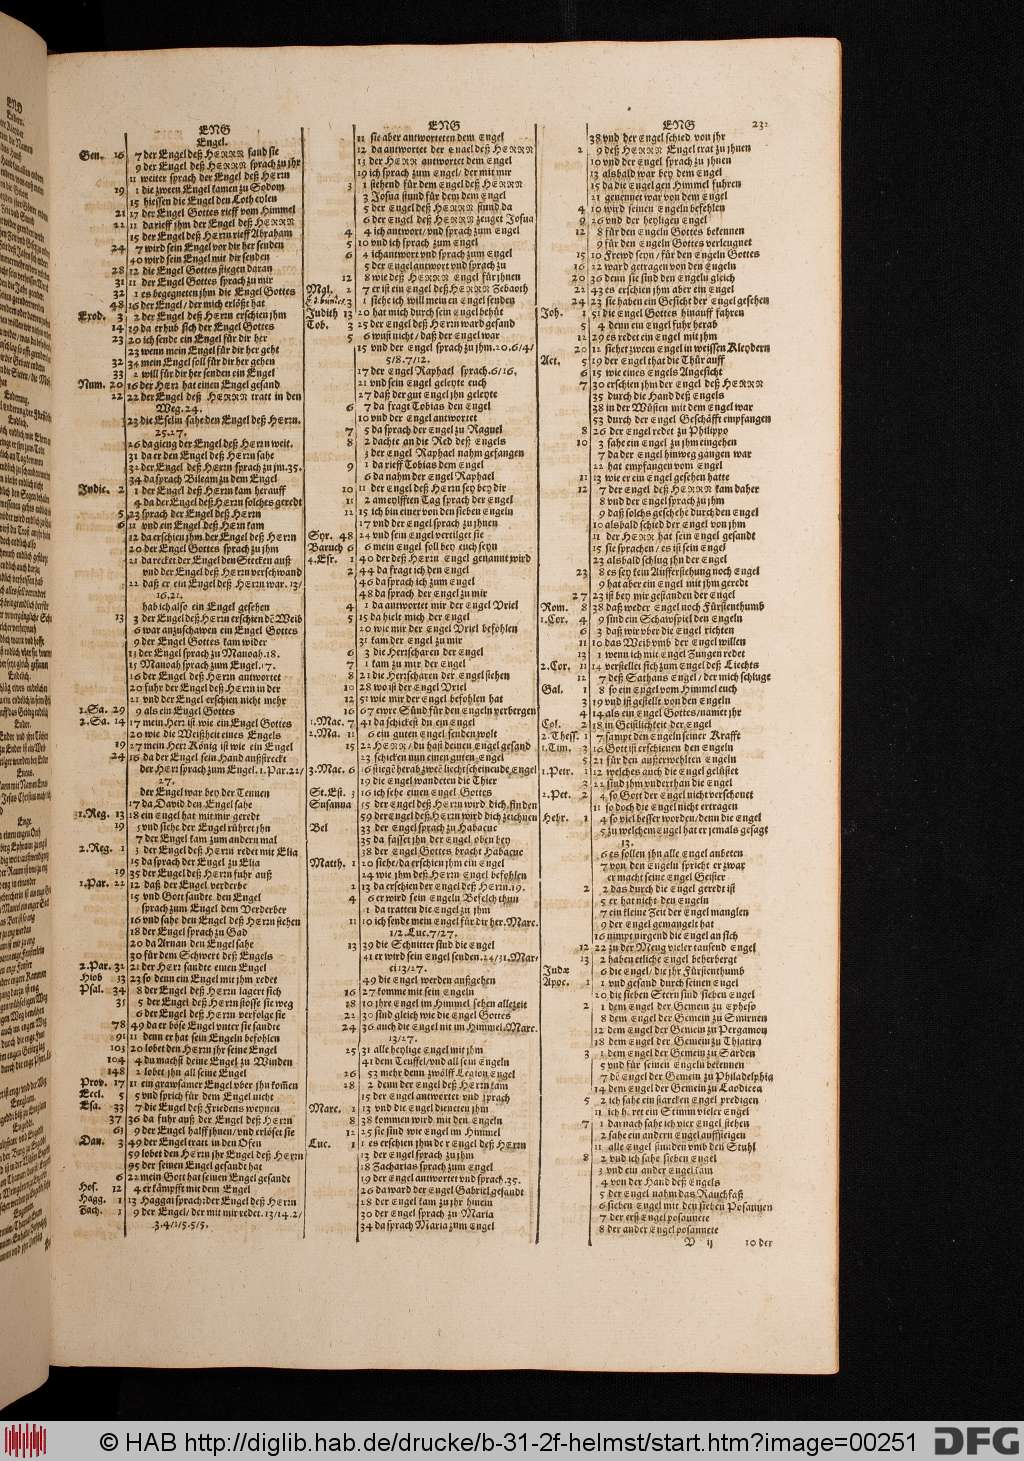 ENG
ENG
ENG
Engel.
Gen. 16 7 der Engel deß HERRN fand sie
9 der Engel deß HERRN sprach zu jhr
11 weiter sprach der Engel deß HErrn
19 1 die zween Engel kamen zu Sodom
15 hiessen die Engel den Loth eylen
21 17 der Engel Gottes rieff vom Himmel
22 11 da rieff jhm der Engel deß HERRN
15 der Engel deß HErrn rieff Abraham
24 7 wird sein Engel vor dir her senden
40 wird sein Engel mit dir senden
28 12 die Engel Gottes stiegen daran
31 11 der Engel Gottes sprach zu mir
32 1 es begegneten jhm die Engel Gottes
48 16 der Engel / der mich erlößt hat
Exod. 3 2 der Engel deß HErrn erschien jhm
14 19 da erhub sich der Engel Gottes
23 20 ich sende ein Engel für dir her
23 wenn mein Engel für dir her geht
32 34 mein Engel soll für dir her gehen
33 2 will für dir her senden ein Engel
Num. 20 16 der HErr hat einen Engel gesand
22 22 der Engel deß HERRN tratt in den
Weg. 24.
23 die Eselin sahe den Engel deß HErrn.
25.27.
26 da gieng der Engel deß HErrn weit.
31 da er den Engel deß HErrn sahe
32 der Engel deß HErrn sprach zu jm. 35.
34 da sprach Bileam zu dem Engel
Judic. 2 1 der Engel deß HErrn kam herauff
4 da der Engel deß HErrn solches geredt
5 23 sprach der Engel deß HErrn
6 11 vnd ein Engel deß HErrn kam
12 da erschien jhm der Engel deß HErrn
20 der Engel Gottes sprach zu jhm
21 da reckt der Engel den Stecken auß
vnd der Engel deß HErrn verschwand
22 daß er ein Engel deß HErrn war. 13/
16.21.
hab ich also ein Engel gesehen
13 3 der Engel deß HErrn erschien dē Weib
6 war anzuschawen ein Engel Gottes
9 der Engel Gottes kam wider
13 der Engel sprach zu Manoah. 18.
15 Manoah sprach zum Engel. 17.
16 der Engel deß HErrn antwortet
20 fuhr der Engel deß HErrn in der
21 vnd der Engel erschien nicht mehr
1.Sa. 29 9 als ein Engel Gottes
2.Sa. 14 17 mein Herr ist wie ein Engel Gottes
20 wie die Weißheit eines Engels
19 27 mein Herr König ist wie ein Engel
24 16 da der Engel sein Hand außstreckt
der HErr sprach zum Engel. 1.Par.21/
27.
der Engel war bey der Tennen
17 da David den Engel sahe
1.Reg. 13 18 ein Engel hat mit mir geredt
19 5 vnd siehe der Engel rühret jhn
7 der Engel kam zum andern mal
2.Reg. 1 3 der Engel deß HErrn redet mit Elia
15 da sprach der Engel zu Elia
19 35 der Engel deß HErrn fuhr auß
1.Par. 22 12 daß der Engel verderbe
15 vnd Gott sandte den Engel
sprach zum Engel dem Verderber
16 vnd sahe den Engel deß HErrn stehen
18 der Engel sprach zu Gad
20 da Arnan den Engel sahe
30 für dem Schwert deß Engels
2.Par. 32 21 der HErr sandte einen Engel
Hiob 33 23 so denn ein Engel mit jhm redet
Psal. 34 8 der Engel deß HErrn lagert sich
35 5 der Engel deß HErrn stosse sie weg
6 der Engel deß HErrn verfolge sie
78 49 da er böse Engel vnter sie sandte
91 11 denn er hat sein Engeln befohlen
103 20 lobet den HErrn jhr seine Engel
104 4 du machst deine Engel zu Winden
148 2 lobet jhn all seine Engel
Prov. 17 11 ein grawsamer Engel vber jhn kom̄en
Eccl. 5 5 vnd sprich für dem Engel nicht
Esa. 33 7 die Engel deß Friedens weynen
37 36 da fuhr auß der Engel deß HErrn
63 9 der Engel halff jhnen / vnd erlöset sie
Dan. 3 49 der Engel tratt in den Ofen
59 lobet den HErrn jhr Engel deß HErrn
95 der seinen Engel gesandt hat
6 22 mein Gott hat seinen Engel gesandt
Hos. 12 4 er kämpfft mit dem Engel
Hagg. 1 13 Haggai sprach: der Engel deß HErrn
Zach. 1 9 der Engel / der mit mir redet. 13/14.2/
3.4/1/5.5/5.
11 sie aber antworteten dem Engel
12 da antwortet der Engel deß HERRN
13 der HERR antwortet dem Engel
19 ich sprach zum Engel / der mit mir
3 1 stehend für dem Engel deß HERRN
3 Josua stund für dem dem Engel
5 der Engel deß HERRN stund da
6 der Engel deß HERRN zeuget Josua
4 4 ich antwort / vnd sprach zum Engel
5 10 vnd ich sprach zum Engel
6 4 ich antwort vnd sprach zum Engel
5 der Engel antwort vnd sprach zu
12 8 wie deß HERRN Engel für jhnen
Mal. 2 7 er ist ein Engel deß HERRN Zebaoth
3 1 siehe ich will meinen Engel senden
Judith 13 20 hat mich durch sein Engel behüt
Tob. 3 25 der Engel deß HErrn ward gesand
5 6 wust nicht / daß der Engel war
15 vnd der Engel sprach zu jhm. 20.6/4/
5/8.7/12.
17 der Engel Raphael sprach. 6/16.
21 vnd sein Engel geleyte euch
27 daß der gut Engel jhn geleyte
6 7 da fragt Tobias den Engel
10 vnd der Engel antwortet
7 5 da sprach der Engel zu Raguel
8 2 dachte an die Red deß Engels
3 der Engel Raphael nahm gefangen
9 1 da rieff Tobias dem Engel
6 da nahm der Engel Raphael
10 11 der Engel deß HErrn sey bey dir
11 2 am eylfften Tag sprach der Engel
12 15 ich bin einer von den sieben Engeln
17 vnd der Engel sprach zu jhnen
Syr. 48 24 vnd sein Engel vertilget sie
Baruch 6 6 mein Engel soll bey euch seyn
4.Esr. 1 40 der deß HErrn Engel genannt wird
2 44 da fragt ich den Engel
46 da sprach ich zum Engel
48 da sprach der Engel zu mir
4 1 da antwortet mir der Engel Vriel
5 15 da hielt mich der Engel
20 wie mir der Engel Vriel befohlen
31 kam der Engel zu mir
6 3 die Herrscharen der Engel
7 1 kam zu mir der Engel
8 21 die Herrscharen der Engel stehen
10 28 wo ist der Engel Vriel
12 51 wie mir der Engel befohlen hat
16 67 ewre Sünd für den Engeln verbergen
1.Mac. 7 41 da schickest du ein Engel
2.Ma. 11 6 ein guten Engel senden wolt
15 22 HERR / du hast deinen Engel gesand
23 schicken nun einen guten Engel
3.Mac. 6 16 stiegē herab zweē liecht scheinende Engel
19 die Engel wandten die Thier
St.Est. 3 16 ich sehe einen Engel Gottes
Susanna 55 der Engel deß HErrn wird dich finden
59 der Engel deß HErrn wird dich zeichnen
Bel 33 der Engel sprach zu Habacuc
35 da fasset jhn der Engel oben bey
38 der Engel Gottes bracht Habacuc
Matth. 1 20 siehe / da erschien jhm ein Engel
24 wie jhm deß HErrn Engel befohlen
2 13 da erschien der Engel deß HErrn. 19.
4 6 er wird sein Engeln Befelch thun
11 da tratten die Engel zu jhm
11 10 ich sende mein Engel für dir her. Marc.
1/2. Luc.7/27.
13 39 die Schnitter sind die Engel
41 er wird sein Engel senden. 24/31. Mar-
ci 13/27.
49 die Engel werden außgehen
16 27 komme mit sein Engeln
18 10 jhre Engel im Himmel sehen allezeit
22 30 sind gleich wie die Engel Gottes
24 36 auch die Engel nit im Himmel. Marc.
13/27.
25 31 alle heylige Engel mit jhm
41 dem Teuffel / vnd all sein Engeln
26 53 mehr denn zwölff Legion Engel
28 2 denn der Engel deß HErrn kam
15 der Engel antwortet vnd sprach
Marc. 1 13 vnd die Engel dieneten jhm
8 38 kommen wird mit den Engeln
12 25 sie sind wie Engel im Himmel
Luc. 1 11 es erschien jhm der Engel deß HErrn
13 der Engel sprach zu jhm
18 Zacharias sprach zum Engel
19 der Engel antwortet vnd sprach. 35.
26 da ward der Engel Gabriel gesandt
28 der Engel kam zu jhr hinein
30 der Engel sprach zu Maria
34 da sprach Maria zum Engel
38 vnd der Engel schied von jhr
2 9 deß HERRN Engel trat zu jhnen
10 vnd der Engel sprach zu jhnen
13 alsbald war bey dem Engel
15 da die Engel gen Himmel fuhren
21 genennet war von dem Engel
4 10 wird seinen Engeln befehlen
9 26 vnd der heyligen Engel
12 8 für den Engeln Gottes bekennen
9 für den Engeln Gottes verleugnet
15 10 Frewd seyn / für den Engeln Gottes
16 22 ward getragen von den Engeln
20 36 denn sie sind den Engeln gleich
22 43 es erschien jhm aber ein Engel
24 23 sie haben ein Gesicht der Engel gesehen
Joh. 1 51 die Engel Gottes hinauff fahren
5 4 denn ein Engel fuhr herab
12 29 es redet ein Engel mit jhm
20 12 siehet zween Engel in weissen Kleydern
Act. 5 19 der Engel that die Thür auff
6 15 wie eines Engels Angesicht
7 30 erschien jhm der Engel deß HERRN
35 durch die Hand deß Engels
38 in der Wüsten mit dem Engel war
53 durch der Engel Geschäfft empfangen
8 26 der Engel redet zu Philippo
10 3 sahe ein Engel zu jhm eingehen
7 da der Engel hinweg gangen war
22 hat empfangen vom Engel
11 13 wie er ein Engel gesehen hatte
12 7 der Engel deß HERRN kam daher
8 vnd der Engel sprach zu jhm
9 daß solchs geschehe durch den Engel
10 alsbald schied der Engel von jhm
11 der HERR hat sein Engel gesandt
15 sie sprachen / es ist sein Engel
23 alsbald schlug jhn der Engel
23 8 es sey kein Aufferstehung noch Engel
9 hat aber ein Engel mit jhm geredt
27 23 ist bey mir gestanden der Engel
Rom. 8 38 daß weder Engel noch Fürstenthumb
1.Cor. 4 9 sind ein Schawspiel den Engeln
6 3 daß wir vber die Engel richten
11 10 das Weib vmb der Engel willen
13 1 wenn ich mit Engel Zungen redet
2.Cor. 11 14 verstellet sich zum Engel deß Liechts
12 7 deß Sathans Engel / der mich schluge
Gal. 1 8 so ein Engel vom Himmel euch
3 19 vnd ist gestellt von den Engeln
4 14 als ein Engel Gottes / namet jhr
Col. 2 18 in Geistlichkeit der Engel
2.Thess. 1 7 sampt den Engeln seiner Krafft
1.Tim. 3 16 Gott ist erschienen den Engeln
5 21 für den außerwehlten Engeln
1.Petr. 1 12 welches auch die Engel gelüstet
3 22 sind jhm vnderthan die Engel
2.Pet. 2 4 so Gott der Engel nicht verschonet
11 so doch die Engel nicht ertragen
Hebr. 1 4 so viel besser worden / denn die Engel
5 zu welchem Engel hat er jemals gesagt
13.
6 es sollen jhn alle Engel anbeten
7 von den Engeln spricht er zwar
er macht seine Engel Geister
2 2 das durch die Engel geredt ist
5 er hat nicht den Engeln
7 ein kleine Zeit der Engel manglen
9 der Engel gemangelt hat
16 nimpt nirgend die Engel an sich
12 22 zu der Meng vieler tausend Engel
13 2 haben etliche Engel beherbergt
Judæ 6 die Engel / die jhr Fürstenthumb
Apoc. 1 1 vnd gesand durch seinen Engel
20 die sieben Stern sind sieben Engel
2 1 dem Engel der Gemein zu Epheso
8 dem Engel der Gemein zu Smirnen
12 dem Engel der Gemein zu Pergamon
18 dem Engel der Gemein zu Thiatira
3 1 dem Engel der Gemein zu Sarden
5 vnd für seinen Engeln bekennen
7 dē Engel der Gemein zu Philadelphia
14 dem Engel der Gemein zu Laodicea
5 2 ich sahe ein starcken Engel predigen
11 ich h. ret ein Stimm vieler Engel
7 1 dar nach sahe ich vier Engel stehen
2 sahe ein andern Engel auffsteigen
11 alle Engel stunden vmb den Stuhl
8 2 vnd ich sahe sieben Engel
3 vnd ein ander Engel kam
4 von der Hand deß Engels
5 der Engel nahm das Rauchfaß
6 sieben Engel mit den sieben Posaunen
7 der erst Engel posaunete
8 der ander Engel posaunete
V ij 10 der
© HAB http://diglib.hab.de/drucke/b-31-2f-helmst/start.htm?image=00251
DFG